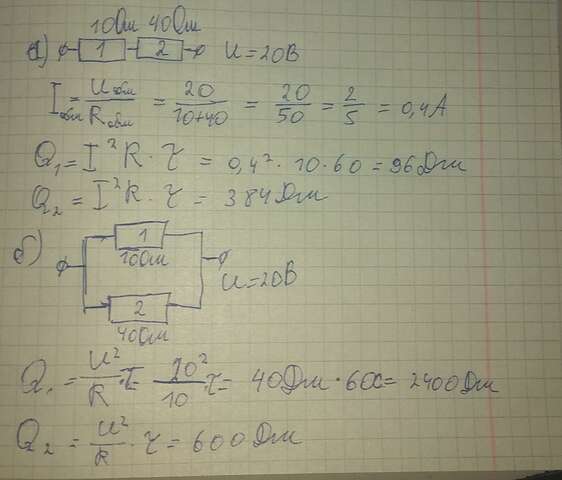 10Ом 40Ом
а) 1 2 U=20В
Iобщ = Uобщ/Rобщ = 20/10+40 = 20/50 = 2/5 = 0,4А
Q₁ = I²R · τ = 0,4² · 10 · 60 = 96Дж
Q₂ = I²R · τ = 384Дж
б) 1
10Ом
U=20В
2
40Ом
Q₁ = U²/R · τ = 20²/10 · τ = 40Дж · 60с = 2400Дж
Q₂ = U²/R · τ = 600Дж